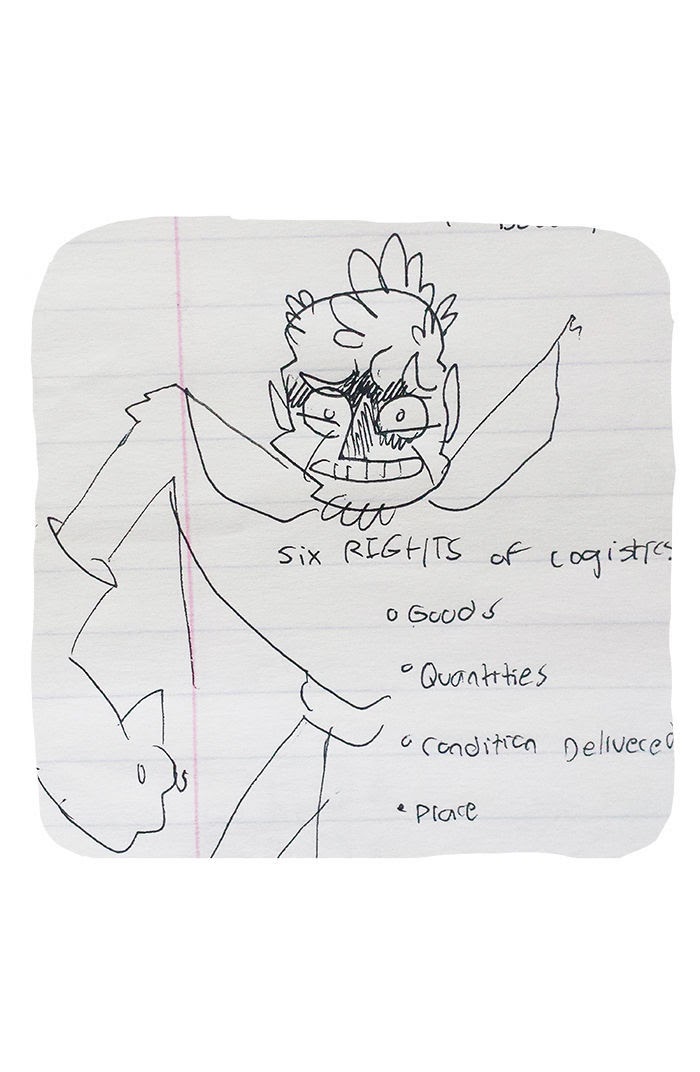 Six RIGHTS of Logistics
Goods
Quantities
Condition Delivered
Place